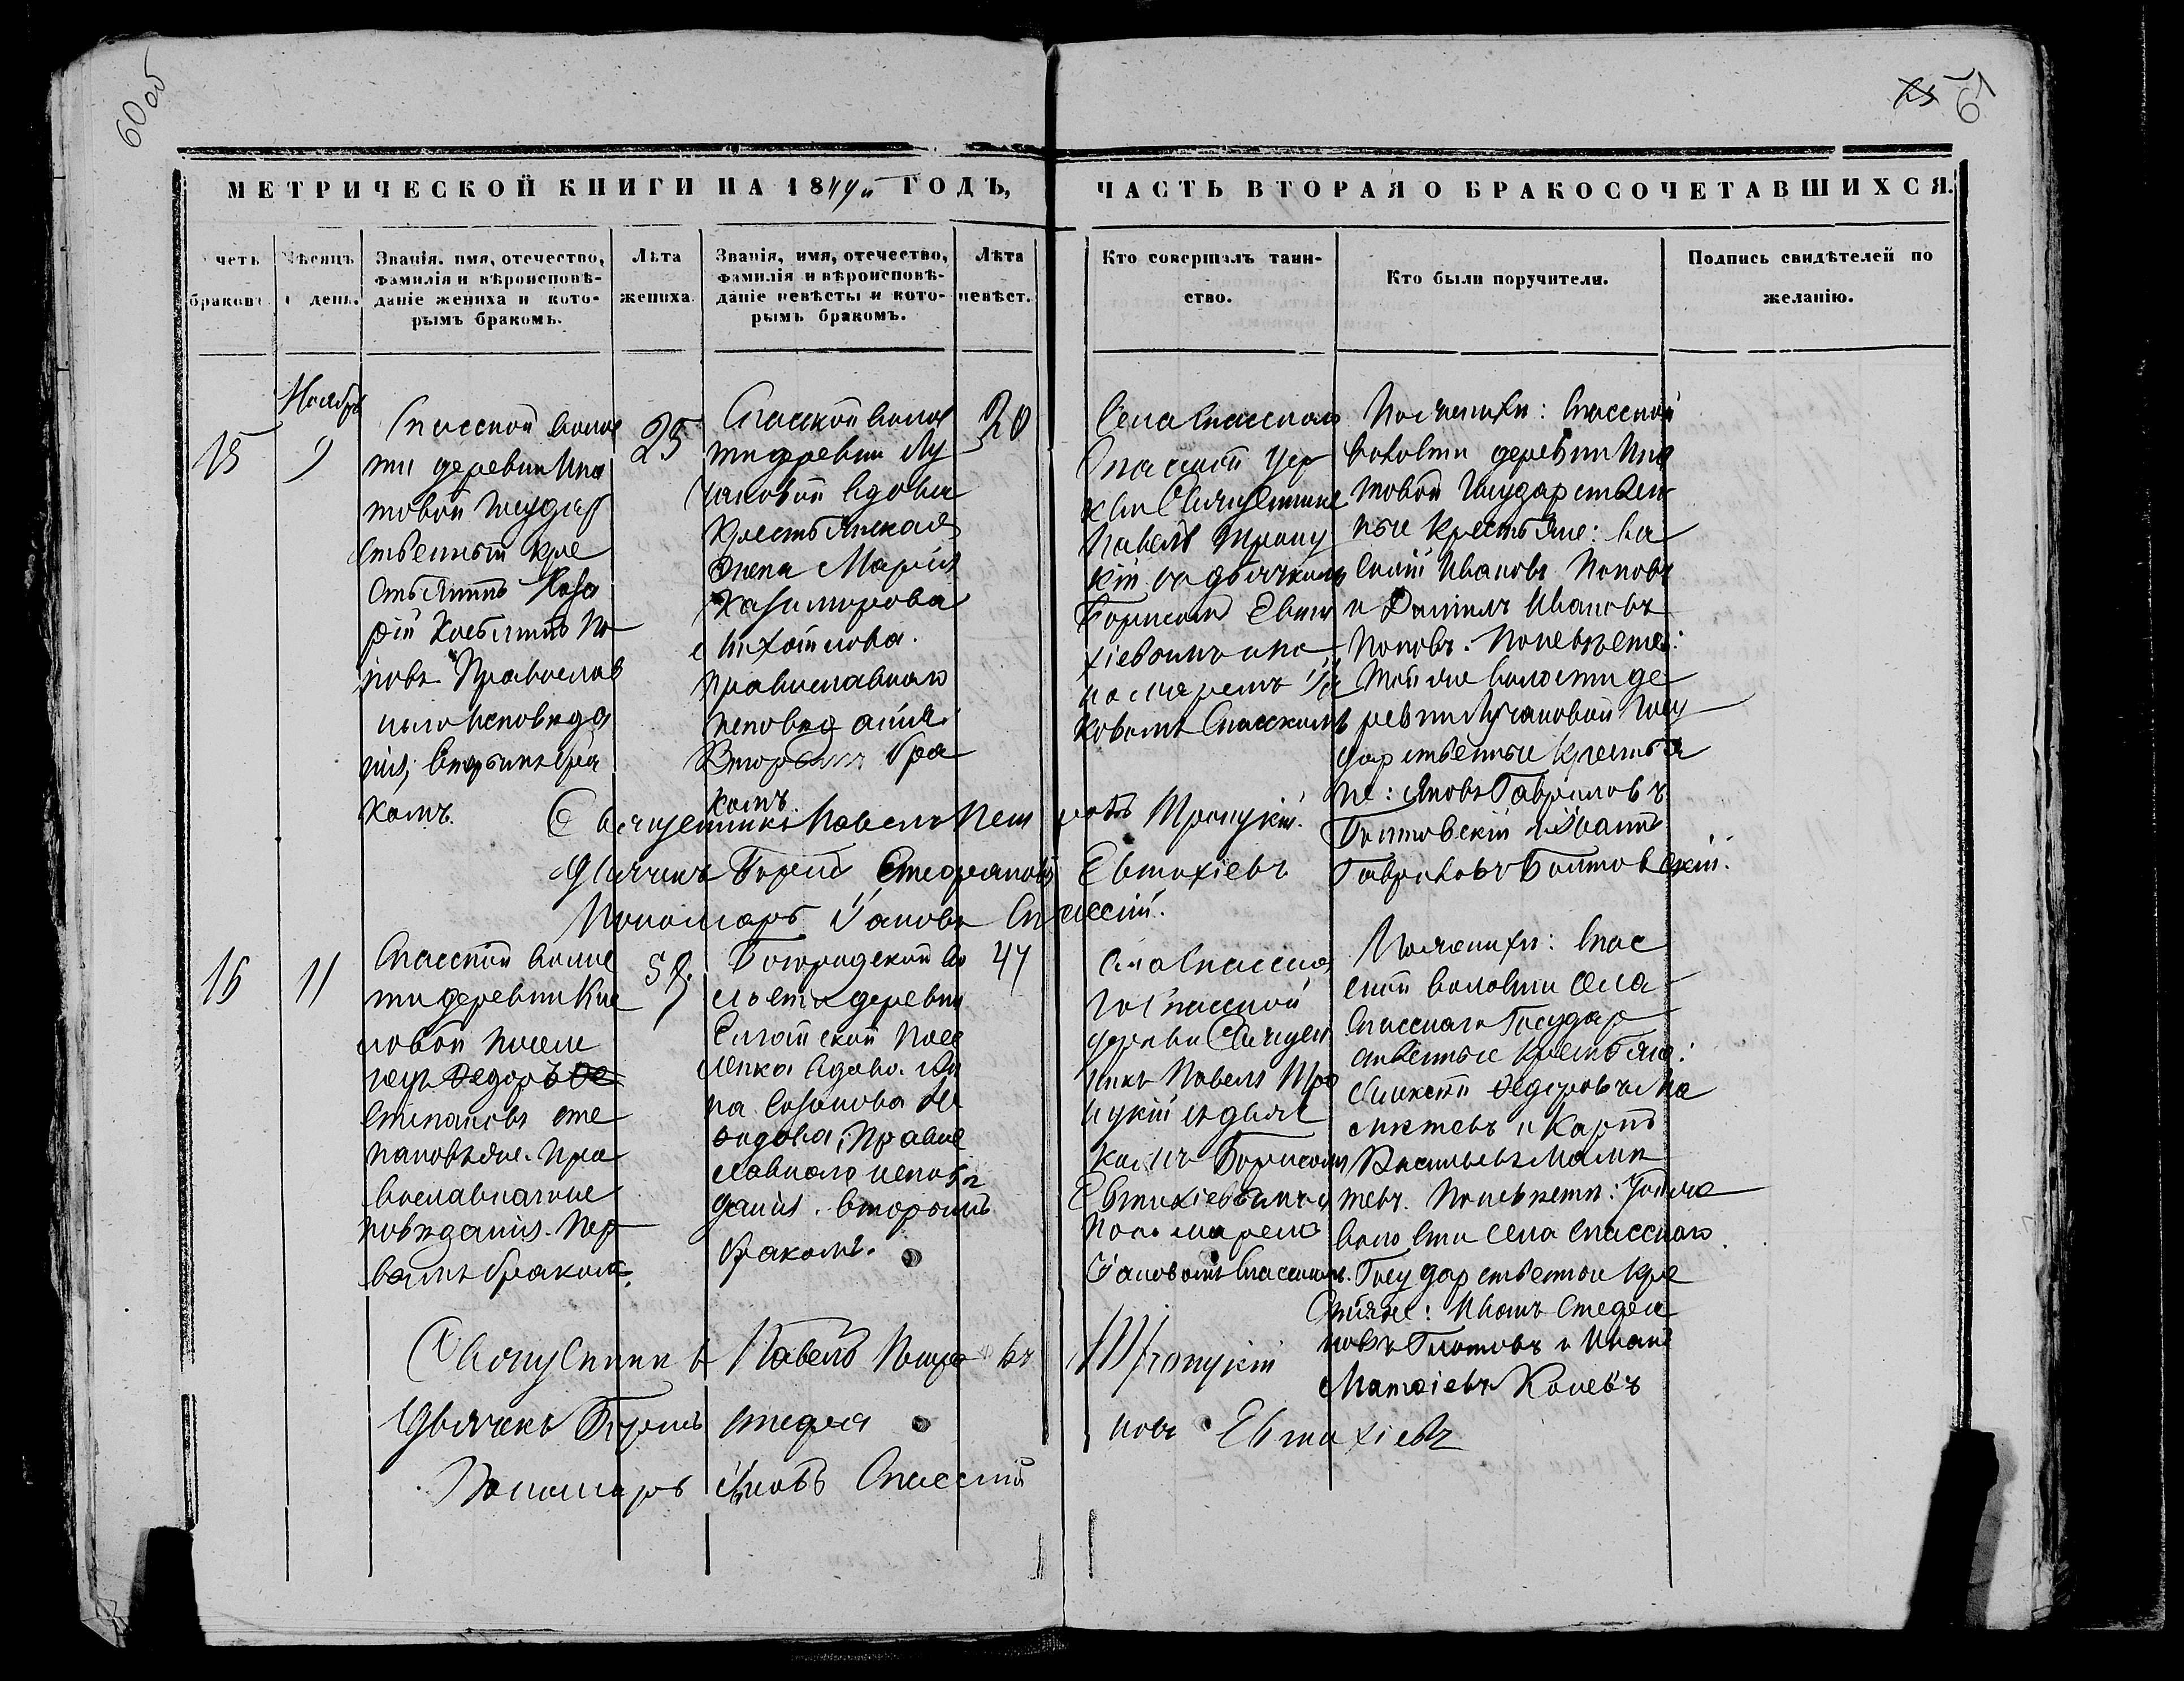 60 об
61
МЕТРИЧЕСКОЙ КНИГИ НА 1844й ГОДЪ,
ЧАСТЬ ВТОРАЯ О БРАКОСОЧЕТАВШИХСЯ.
четъ
браковъ.
Мѣсяцъ
и день.
Званія. имя, отечество,
фамилія и вѣроисповѣ-
даніе жениха и кото-
рымъ бракомъ.
Лѣта
жениха.
Званія, имя, отечество,
фамилія и вѣроисповѣ-
даніе невѣсты и кото-
рымъ бракомъ.
Лѣта
невѣст.
Кто совершалъ таин-
ство.
Кто были поручители.
Подпись свидѣтелей по
желанію.
15
Ноябрь
9
Спасской волос
ти деревни Ипа
товой Государ
ственный кре
стьянинъ
По
повъ Православ
наго исповѣда
нія, вторымъ бра
комъ.
25
Спасской волос
ти деревни Лу
чановой вдова
Крестьянская
жена Марія
Казимирова
Михайлова.
православнаго
исповѣданія.
Вторымъ бра
комъ.
20
Села Спаскаго
Спасской Цер
кви Священникъ
Павелъ Троиц
кій съ дьячкомъ
Борисомъ Евти
хіевымъ и по
номаремъ Іа
ковомъ Спасскимъ
По женихѣ: Спасской
волости деревни Ипа
товой Государствен
ные крестьяне: Ва
силій Ивановъ Поповъ
и Даниилъ Ивановъ
Поповъ. По невѣстѣ:
Той же волости де
ревни Лучановой Госу
дарственные крестья
не: Яковъ Гавриловъ
Болтовскій и Иванъ
Гавриловъ Болтовскій.
Священникъ Павелъ Петровъ Троицкій.
Дьячекъ Борисъ Стефановъ Евтихіевъ
Пономарь Іаковъ Спасскій.
16
11
Спасской волос
ти деревни Кис
ловой поселе
нецъ Федоръ Фе
Степановъ Сте
пановъ же. Пра
вославнаго ис
повѣданія. Пер
вымъ бракомъ.
57.
Богородской во
лости деревни
Елгайской Посе
ленка вдова Ан
на Созонова Да
видова, Право
славнаго исповѣ
данія. вторымъ
бракомъ.
47
Села Спасска
го Спасской
церкви Священ
никъ Павелъ Тро
ицкій съ дьяч
комъ Борисомъ
Евтихіевымъ и
Пономаремъ
Іаковомъ Спасскимъ.
По женихѣ: Спас
ской волости села
Спасскаго Государ
ственные крестьяне:
Алексѣй Федоровъ Ма
лютевъ и Карпъ
Васильевъ Малю
тевъ. По невѣстѣ: Той же
волости села Спасскаго
Государственные кре
стьяне: Иванъ Стефа
новъ Глотовъ и Иванъ
Матвіевъ Коневъ
Священникъ Павелъ Петровъ Троицкій
Дьячекъ Борисъ Стефановъ Евтихіевъ
Пономарь Яковъ Спасскій